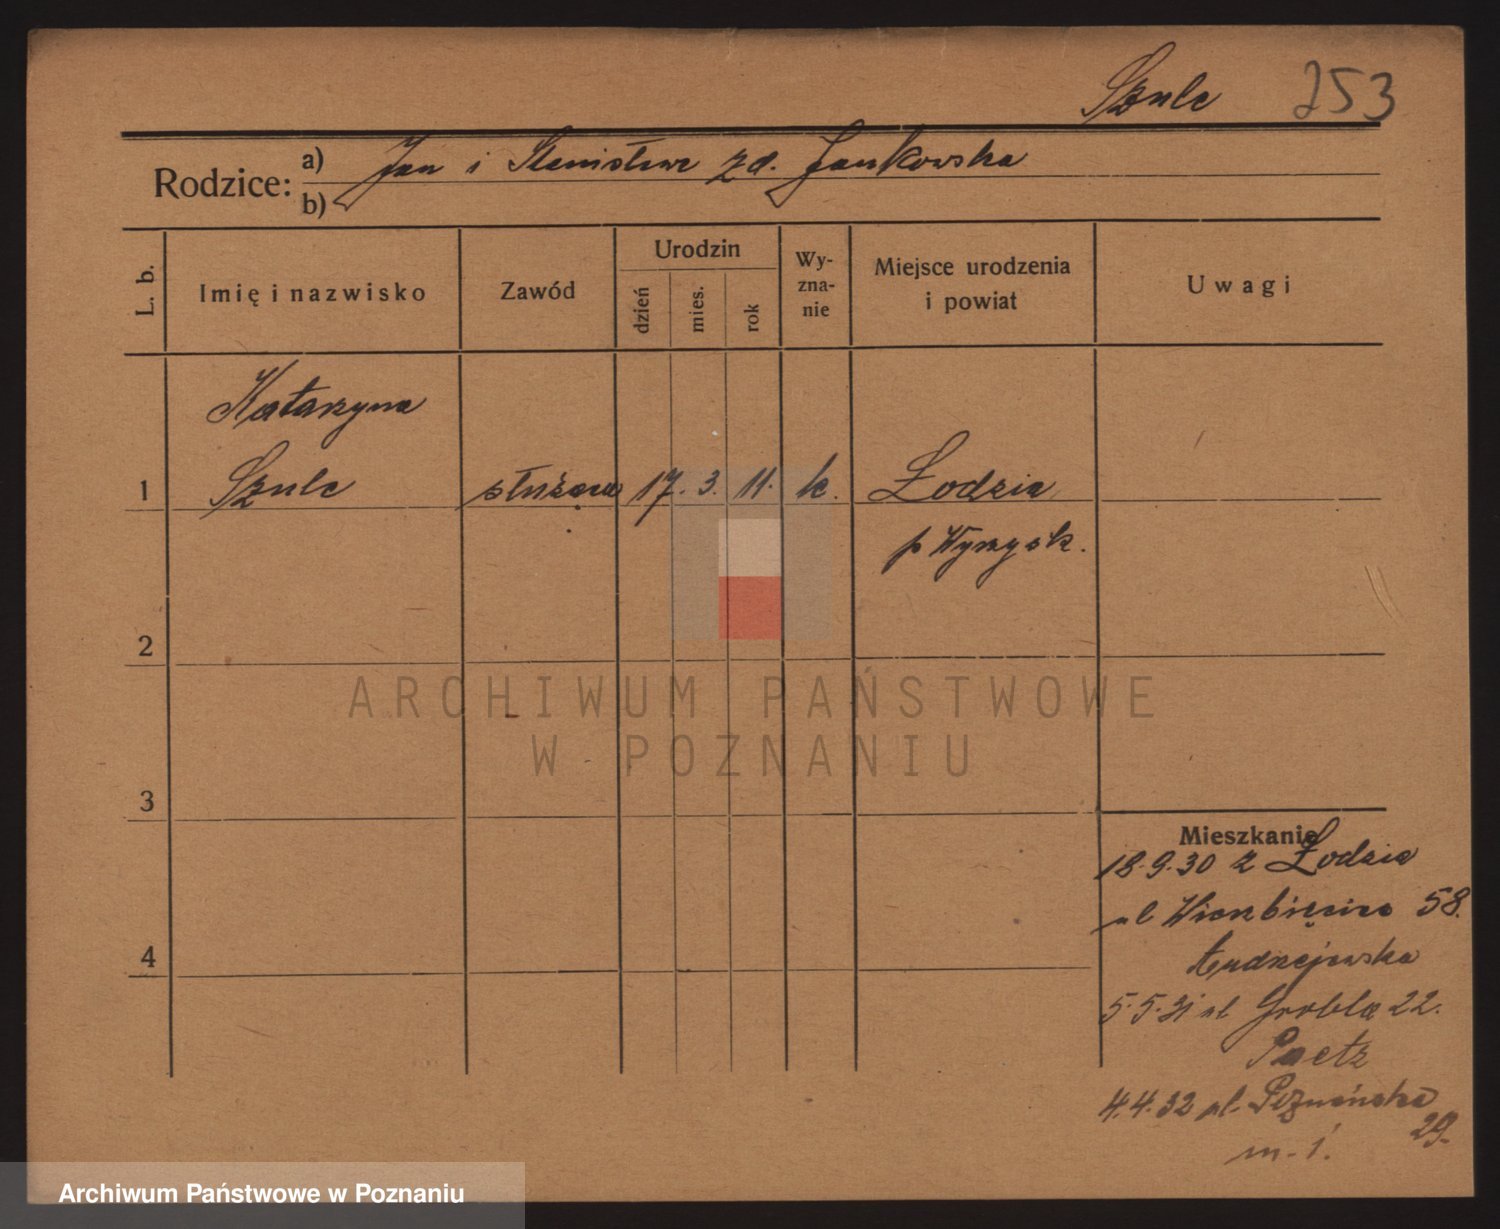 Szulc 253
Rodzice: a) Jan i Stanisława zd. Jankowska
b)
L. b. Imię i nazwisko Zawód Urodzin dzień mies. rok Wyznanie Miejsce urodzenia i powiat Uwagi
Katarzyna
1 Szulc służąca 17. 3. 11. k. Łodzia
p Wyrzysk.
2
ARCHIWUM PAŃSTWOWE
W POZNANIU
3
Mieszkanie
18.9.30 z Łodzia
ul Wierzbięcice 58.
4
Andrzejewska
5.5.31 ul Grobla 22.
Paetz
4.4.32 ul. Poznańska
29.
m. 1.
Archiwum Państwowe w Poznaniu